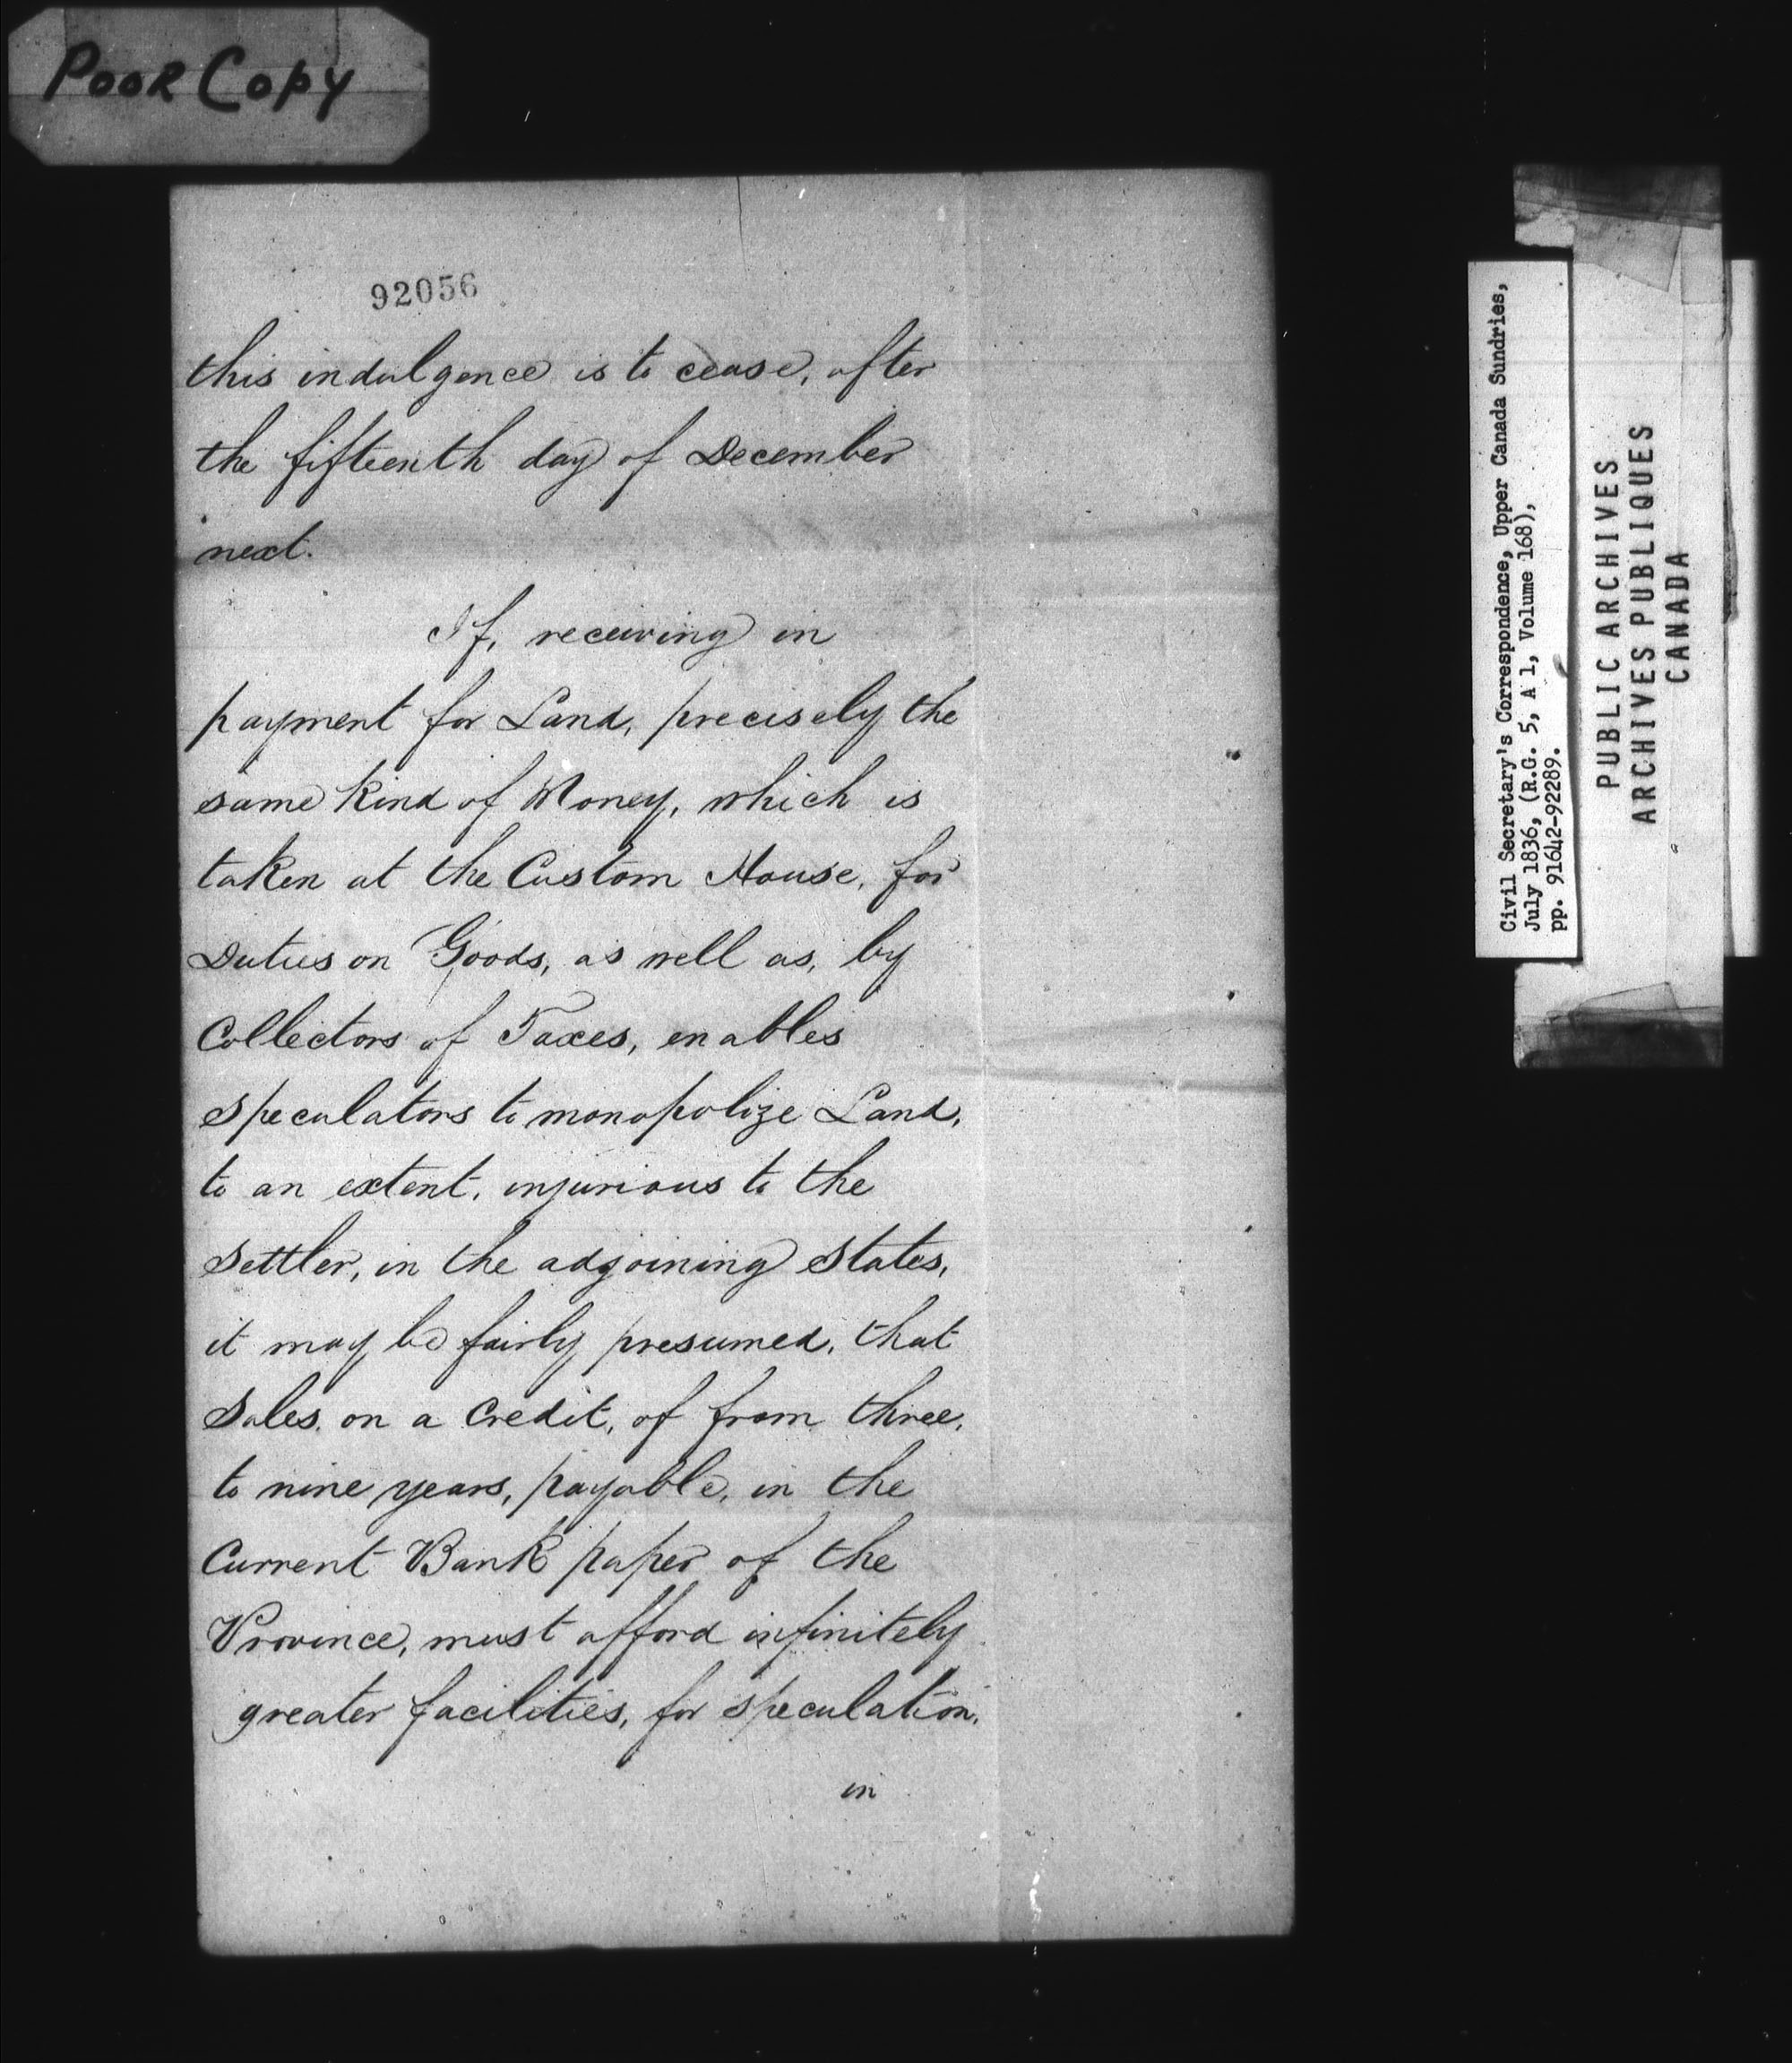 Poor Copy
92056
this indulgence is to cease, after
the fifteenth day of December
next.
If, receiving in
payment for Land, precisely the
same kind of Money, which is
taken at the Custom House, for
Duties on Goods, as well as, by
Collectors of Taxes, enables
Speculators to monopolize Land,
to an extent, injurious to the
Settler, in the adjoining States,
it may be fairly presumed, that
Sales, on a Credit, of from three,
to nine years, payable, in the
Current Bank paper of the
Province, must afford infinitely
greater facilities, for speculation,
in
Civil Secretary's Correspondence, Upper Canada Sundries,
July 1836, (R.G. 5, A 1, Volume 168),
pp. 91642-92289.
PUBLIC ARCHIVES
ARCHIVES PUBLIQUES
CANADA